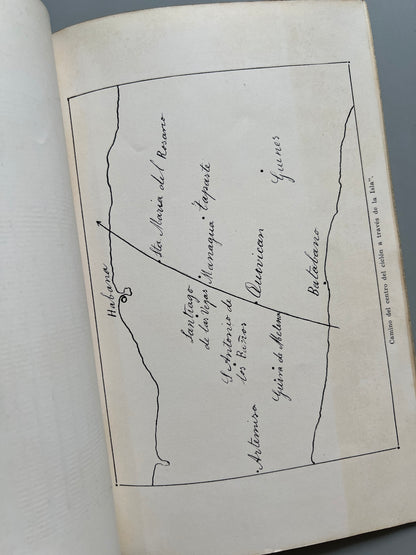 Habana
Sta Maria del Rosario
Santiago
de las Vegas
Managua
Tapaste
S Antonio de
los Baños
Quivican
Guines
Artemisa
Guira de Melena
Batabano
Camino del centro del ciclón a través de la Isla".